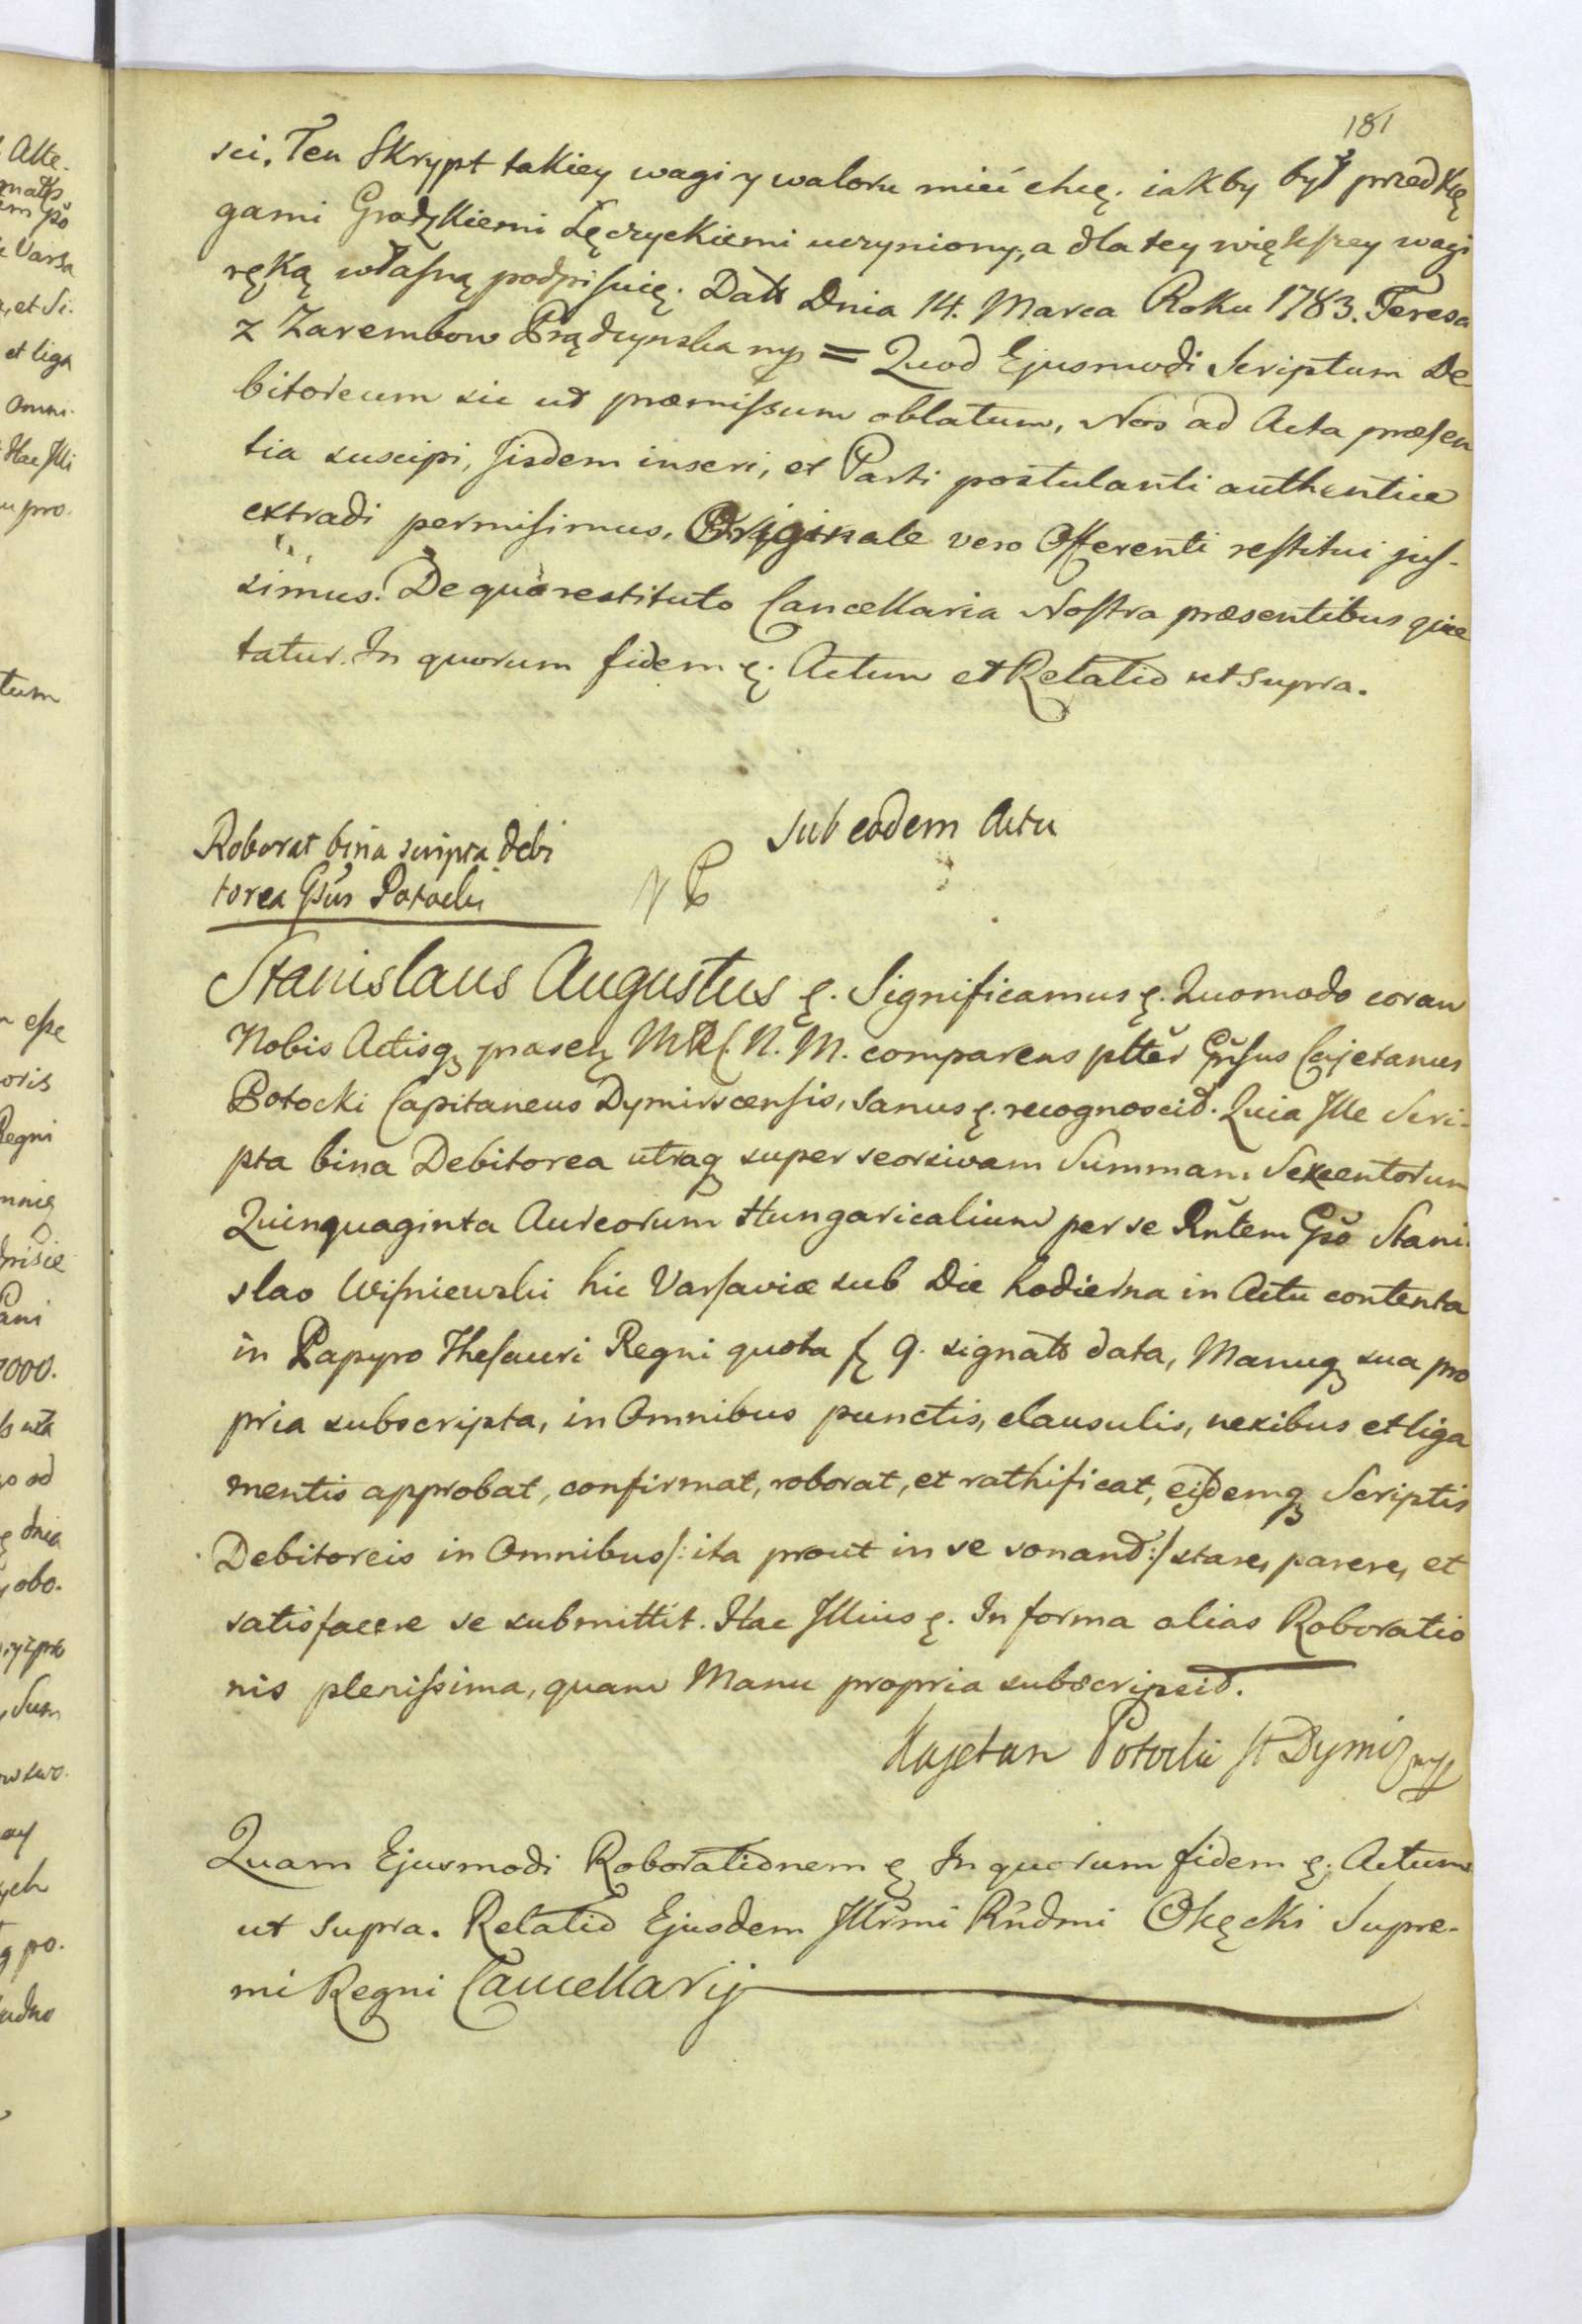 181
sci. Ten Skrypt takiey wagi y waloru mieć chcę. iakby był przed Xię
gami Grodzkiemi Łęczyckiemi uczyniony, a dla tey większey wagi
ręką własną podpisuię. Datt Dnia 14. Marca Roku 1783. Teresa
z Zarembow Prądzynska mp = Quod Ejusmodi Scriptum De
bitoreum sic ut præmissum oblatum, Nos ad Acta præsen
tia suscipi, Iisdem inseri, et Parti postulanti authentice
extradi permisimus. Originale vero Offerenti restitui jus-
simus. De quo restituto Cancellaria Nostra præsentibus quie
tatur. In quorum fidem ę. Actum et Relatio ut supra.
Sub eodem Actu
Roborat bina scripta debi
torea Gsus Potocki
Stanislaus Augustus ę. Significamus ę. Quomodo coram
Nobis Actisq præsen M R C. N. M. comparens pltēr Gnsus Cajetanus
Potocki Capitaneus Dymirscensis, sanus ę. recognoscid. Quia Ille Scri-
pta bina Debitorea utraq super seorsivam Summam Sexcentorum
Quinquaginta Aureorum Hungaricalium per se Rñtem Gso Stani
slao Wisniewski hic Varsaviæ sub Die hodierna in Actu contenta
in Papyro Thesauri Regni quota f 9. signatt data, Manuq sua pro
pria subscripta, in Omnibus punctis, clausulis, nexibus et liga
mentis approbat, confirmat, roborat, et rathificat, eisdemq Scriptis
Debitoreis in Omnibus /: ita prout in se sonand :/ stare, parere, et
satisfacere se submittit. Hac Illius ę. In forma alias Roboratio
nis plenissima, quam Manu propria subscripsid.
Kajetan Potocki St Dymiz mp
Quam Ejusmodi Roborationem ę In quorum fidem ę. Actum
ut supra. Relatio Ejusdem Illrmi Rñdmi Okęcki Supre-
mi Regni Cancellarij